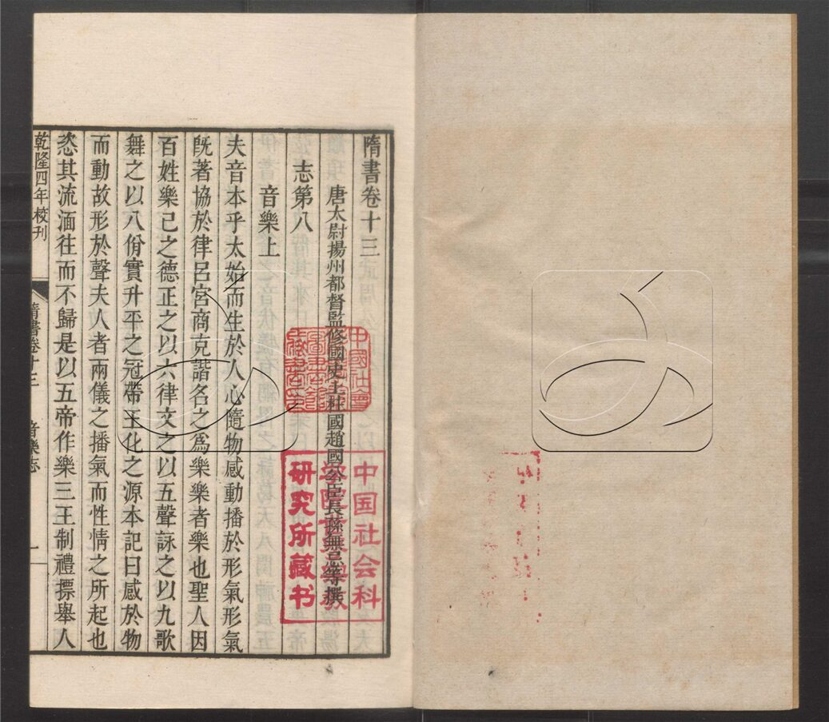 隋書卷十三
唐太尉揚州都督監修國史上柱國趙國公臣長孫無忌等撰
志第八
音樂上
夫音本乎太始而生於人心隨物感動播於形氣形氣
旣著協於律呂宮商克諧名之爲樂樂者樂也聖人因
百姓樂己之德正之以六律文之以五聲詠之以九歌
舞之以八佾實升平之冠帶王化之源本記曰感於物
而動故形於聲夫人者兩儀之播氣而性情之所起也
恣其流湎往而不歸是以五帝作樂三王制禮摽舉人
乾隆四年校刊
隋書卷十三
音樂志
一
中國社會
中国社会科
研究所藏书